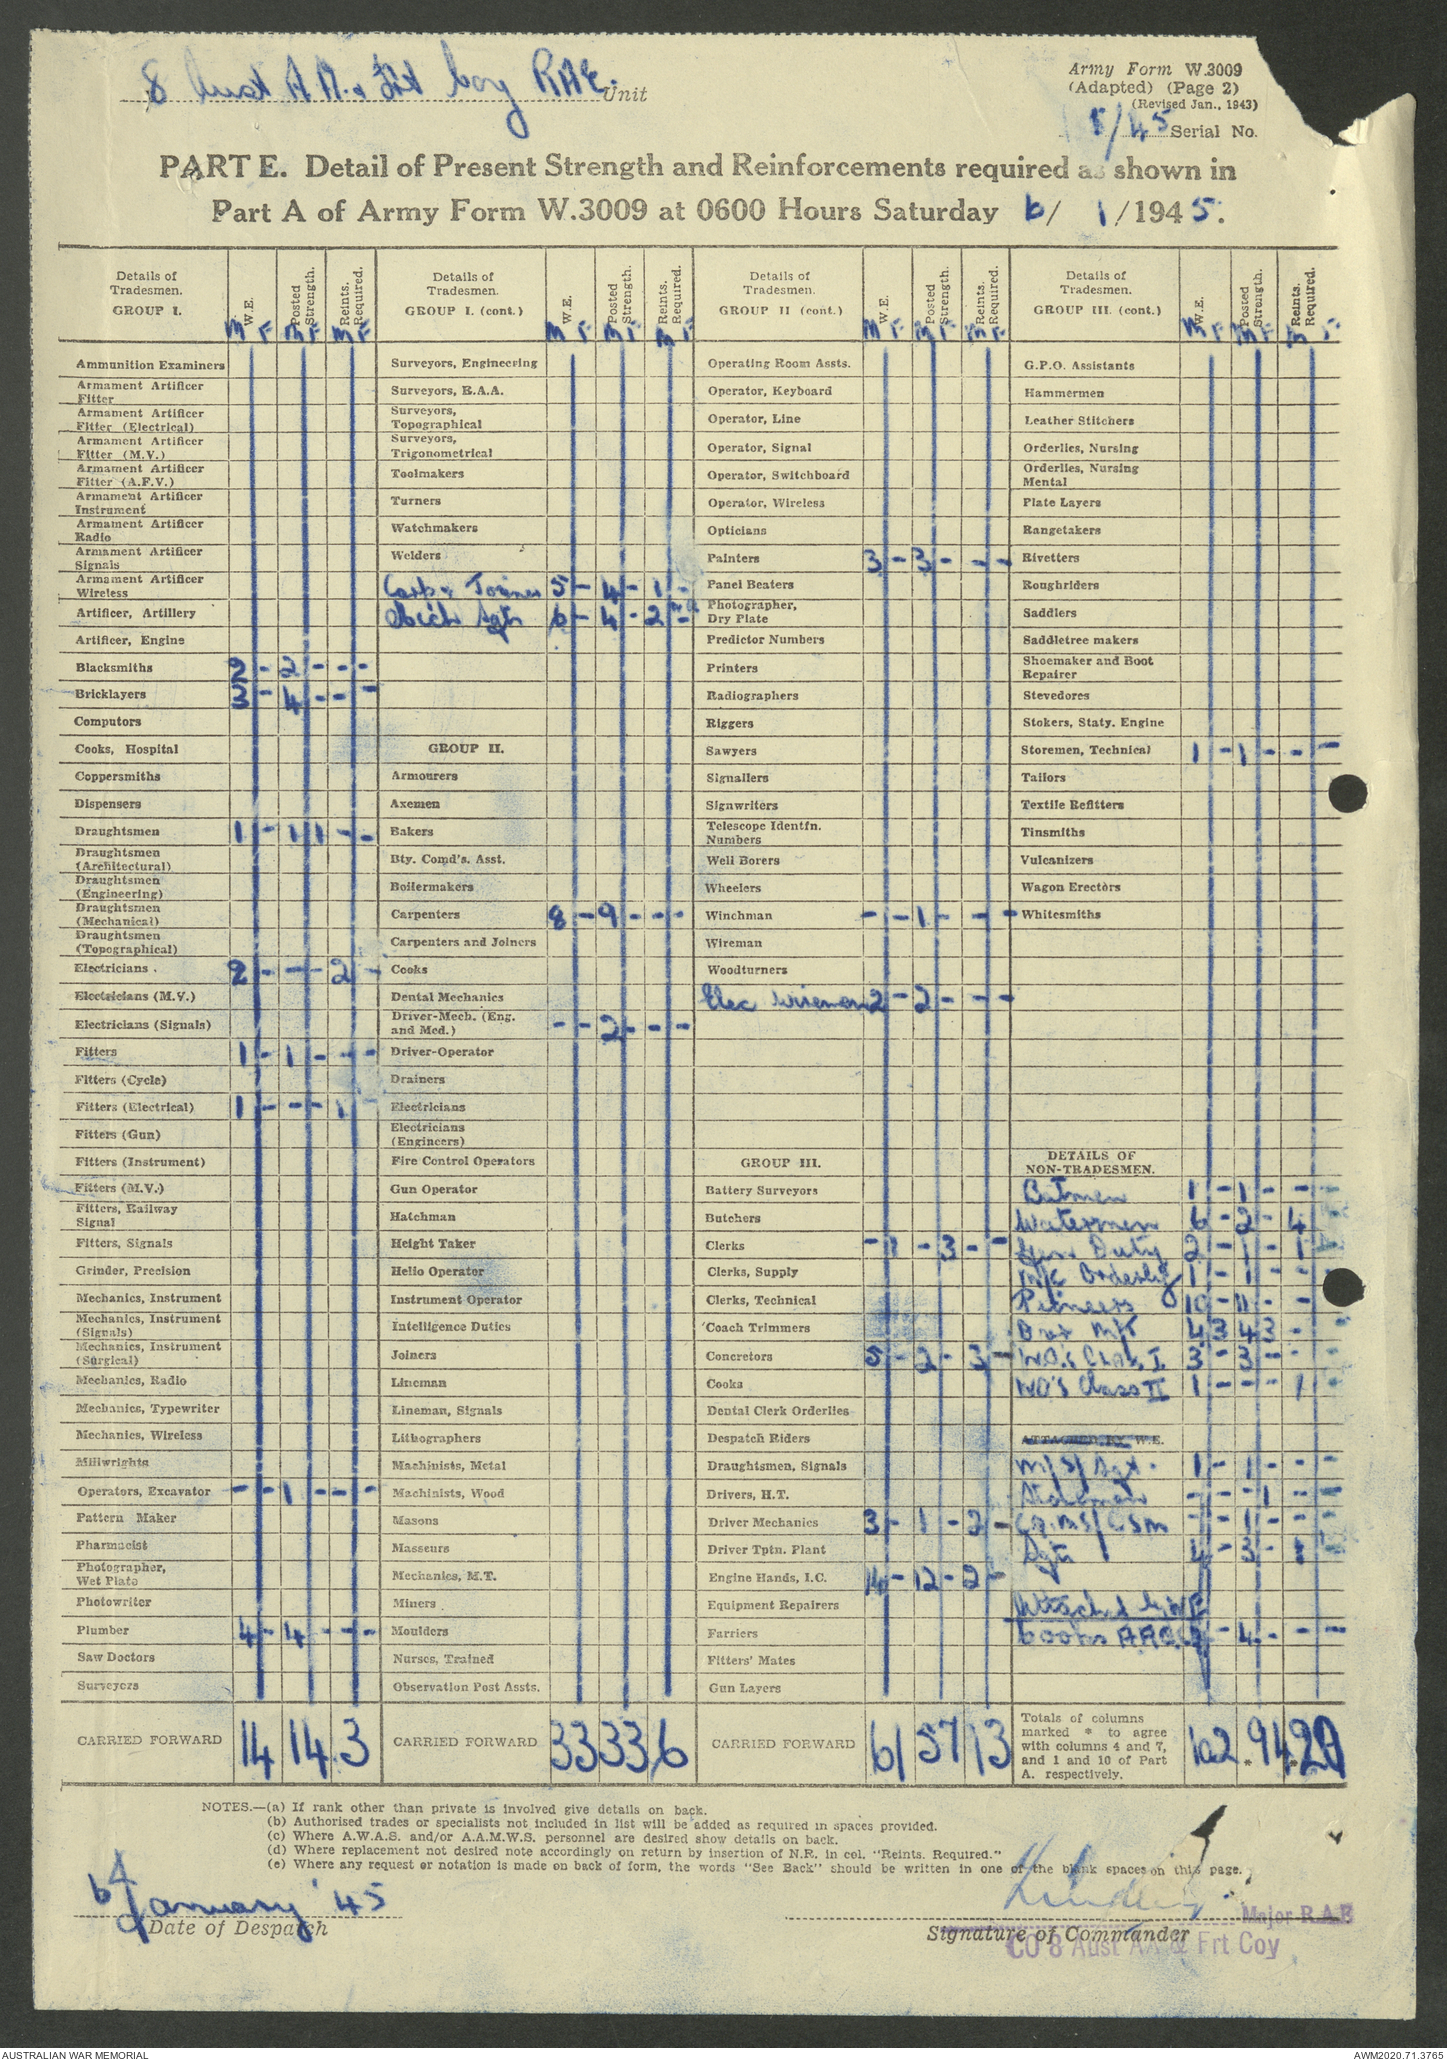 8 Aust A.A. & Frt Coy RAE. Unit
Army Form W.3009
(Adapted) (Page 2)
(Revised Jan., 1943)
1/45 Serial No.
PART E. Detail of Present Strength and Reinforcements required as shown in
Part A of Army Form W.3009 at 0600 Hours Saturday 6/ 1/1945.
Details of Tradesmen. GROUP I. W.E. Posted Strength. Reints. Required. Details of Tradesmen. GROUP I. (cont.) W.E. Posted Strength. Reints. Required. Details of Tradesmen. GROUP II (cont.) W.E. Posted Strength. Reints. Required. Details of Tradesmen. GROUP III. (cont.) W.E. Posted Strength. Reints. Required.
M F M F M F M F M F M F M F M F M F M F M F M F
Ammunition Examiners
Armament Artificer
Fitter
Armament Artificer
Fitter (Electrical)
Armament Artificer
Fitter (M.V.)
Armament Artificer
Fitter (A.F.V.)
Armament Artificer
Instrument
Armament Artificer
Radio
Armament Artificer
Signals
Armament Artificer
Wireless
Artificer, Artillery
Artificer, Engine
Blacksmiths 2 - 2 - - -
Bricklayers 3 - 4 - - -
Computors
Cooks, Hospital
Coppersmiths
Dispensers
Draughtsmen 1 - 1 1 - -
Draughtsmen
(Architectural)
Draughtsmen
(Engineering)
Draughtsmen
(Mechanical)
Draughtsmen
(Topographical)
Electricians 2 - - - 2 -
Electricians (M.V.)
Electricians (Signals)
Fitters 1 - 1 - - -
Fitters (Cycle)
Fitters (Electrical) 1 - - - 1 -
Fitters (Gun)
Fitters (Instrument)
Fitters (M.V.)
Fitters, Railway
Signal
Fitters, Signals
Grinder, Precision
Mechanics, Instrument
Mechanics, Instrument
(Signals)
Mechanics, Instrument
(Surgical)
Mechanics, Radio
Mechanics, Typewriter
Mechanics, Wireless
Millwrights
Operators, Excavator - - 1 - - -
Pattern Maker
Pharmacist
Photographer,
Wet Plate
Photowriter
Plumber 4 - 4 - - -
Saw Doctors
Surveyors
CARRIED FORWARD 14 14 3
Surveyors, Engineering
Surveyors, R.A.A.
Surveyors,
Topographical
Surveyors,
Trigonometrical
Toolmakers
Turners
Watchmakers
Welders
Carp & Joiner 5 - 4 - 1 -
Mech Sgts 6 - 4 - 2 -
GROUP II.
Armourers
Axemen
Bakers
Bty. Comd's. Asst.
Boilermakers
Carpenters 8 - 9 - - -
Carpenters and Joiners
Cooks
Dental Mechanics
Driver-Mech. (Eng.
and Med.) - - 2 - - -
Driver-Operator
Drainers
Electricians
Electricians
(Engineers)
Fire Control Operators
Gun Operator
Hatchman
Height Taker
Helio Operator
Instrument Operator
Intelligence Duties
Joiners
Lineman
Lineman, Signals
Lithographers
Machinists, Metal
Machinists, Wood
Masons
Masseurs
Mechanics, M.T.
Miners
Moulders
Nurses, Trained
Observation Post Assts.
CARRIED FORWARD 33 33 6
Operating Room Assts.
Operator, Keyboard
Operator, Line
Operator, Signal
Operator, Switchboard
Operator, Wireless
Opticians
Painters 3 - 3 - - -
Panel Beaters
Photographer,
Dry Plate
Predictor Numbers
Printers
Radiographers
Riggers
Sawyers
Signallers
Signwriters
Telescope Identfn.
Numbers
Well Borers
Wheelers
Winchman - - 1 - - -
Wireman
Woodturners
Elec Wiremen 2 - 2 - - -
GROUP III.
Battery Surveyors
Butchers
Clerks - 1 - 3 - -
Clerks, Supply
Clerks, Technical
Coach Trimmers
Concretors 5 - 2 - 3 -
Cooks
Dental Clerk Orderlies
Despatch Riders
Draughtsmen, Signals
Drivers, H.T.
Driver Mechanics 3 - 1 - 2 -
Driver Tptn. Plant
Engine Hands, I.C. 14 - 12 - 2 -
Equipment Repairers
Farriers
Fitters' Mates
Gun Layers
CARRIED FORWARD 61 57 13
G.P.O. Assistants
Hammermen
Leather Stitchers
Orderlies, Nursing
Orderlies, Nursing
Mental
Plate Layers
Rangetakers
Rivetters
Roughriders
Saddlers
Saddletree makers
Shoemaker and Boot
Repairer
Stevedores
Stokers, Staty. Engine
Storemen, Technical 1 - 1 - - -
Tailors
Textile Refitters
Tinsmiths
Vulcanizers
Wagon Erectors
Whitesmiths
DETAILS OF
NON-TRADESMEN.
Batmen 1 - 1 - - -
Watermen 6 - 2 - 4 -
Gen Duty 2 - 1 - 1
M/C Orderly 1 - 1 - -
Pioneers 10 - 11 - -
Dvr M/T 4 3 4 3 -
WO's Class I 3 - 3 - -
WO's Class II 1 - - - 1
ATTACHED BY W.E.
M/S/Sgt. 1 - 1 - - -
- - - 1 - -
CQMS/CSM - - 1 - - -
Sgts 4 - 3 - 1
Attached by WE
Cooks AACC 4 - 4 - - -
Totals of columns
marked * to agree
with columns 4 and 7,
and 1 and 10 of Part
A. respectively. 102 94 20
NOTES.—(a) If rank other than private is involved give details on back.
(b) Authorised trades or specialists not included in list will be added as required in spaces provided.
(c) Where A.W.A.S. and/or A.A.M.W.S. personnel are desired show details on back.
(d) Where replacement not desired note accordingly on return by insertion of N.R. in col. "Reints. Required."
(e) Where any request or notation is made on back of form, the words "See Back" should be written in one of the blank spaces on this page.
6 January '45
Date of Despatch
Major RAE
Signature of Commander
CO 8 Aust AA & Frt Coy
AUSTRALIAN WAR MEMORIAL
AWM2020.71.3765